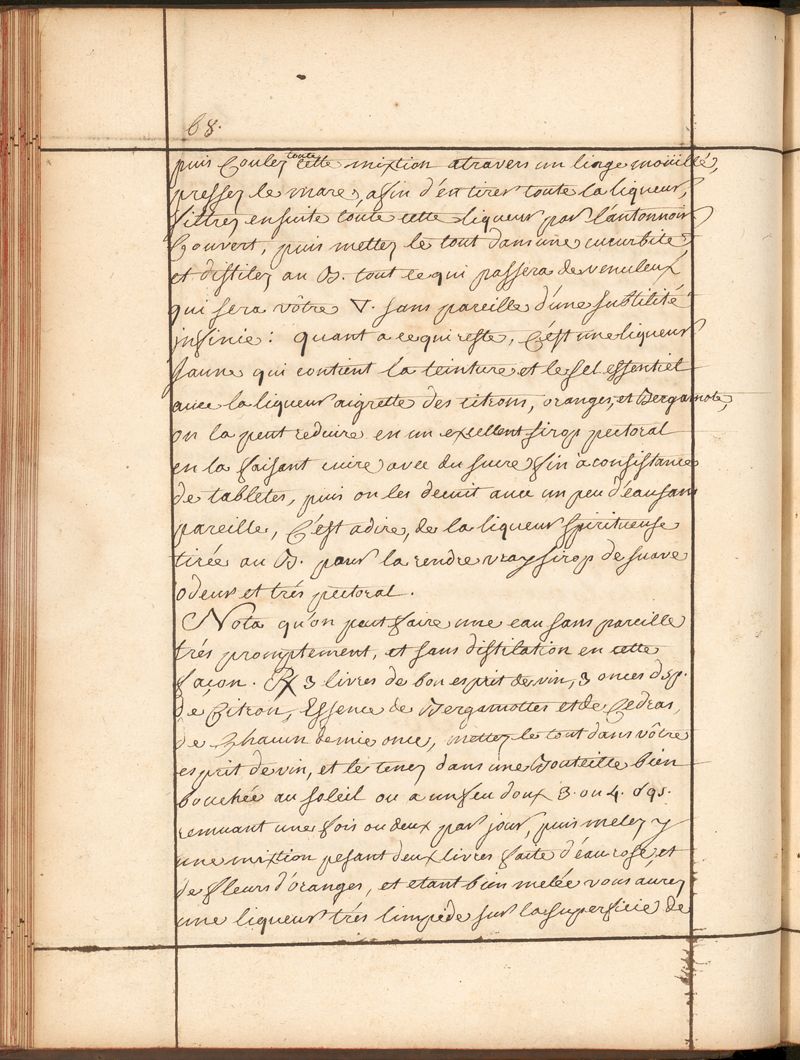 68.
puis Coulez toute cette mixtion atravers un linge moüillé,
pressez le marc, afin d'en tirer toute la liqueur,
filtrez ensuite toute cette liqueur par l'antonnoir
Couvert, puis mettez le tout dans une cucurbite
et distilez au B. tout ce qui passera de venuleux
qui sera vôtre ∇. sans pareille d'une subtilité
infinie: quant a ce qui reste, C'est une liqueur
Jaune qui contient la teinture et le sel essentiel
avec la liqueur aigrette des citrons, oranges, et Bergamote,
on la peut reduire en un excellent sirop pectoral
en la faisant cuire avec du sucre fin à consistance
de tabletes, puis on les decuit avec un peu d'eau sans
pareille, C'est adire, de la liqueur spiritueuse
tirée au B. pour la rendre vray sirop de suave
odeur et trés pectoral.
Nota qu'on peut faire une eau sans pareille
trés promptement, et sans distilation en cette
façon. ℞ 3 livres de bon esprit de vin, 3 onces d'
de Citron, Essence de Bergamottes et de Cedras,
de Chacun demie once, mettez le tout dans vôtre
esprit de vin, et le tenez dans une Bouteille bien
bouchée au soleil ou a un feu doux 3. ou 4.
remuant une fois ou deux par jour, puis melez y
une mixtion pesant deux livres faite d'eau rose, et
de fleurs d'oranges, et etant bien melée vous aurez
une liqueur trés limpide sur la superficie de